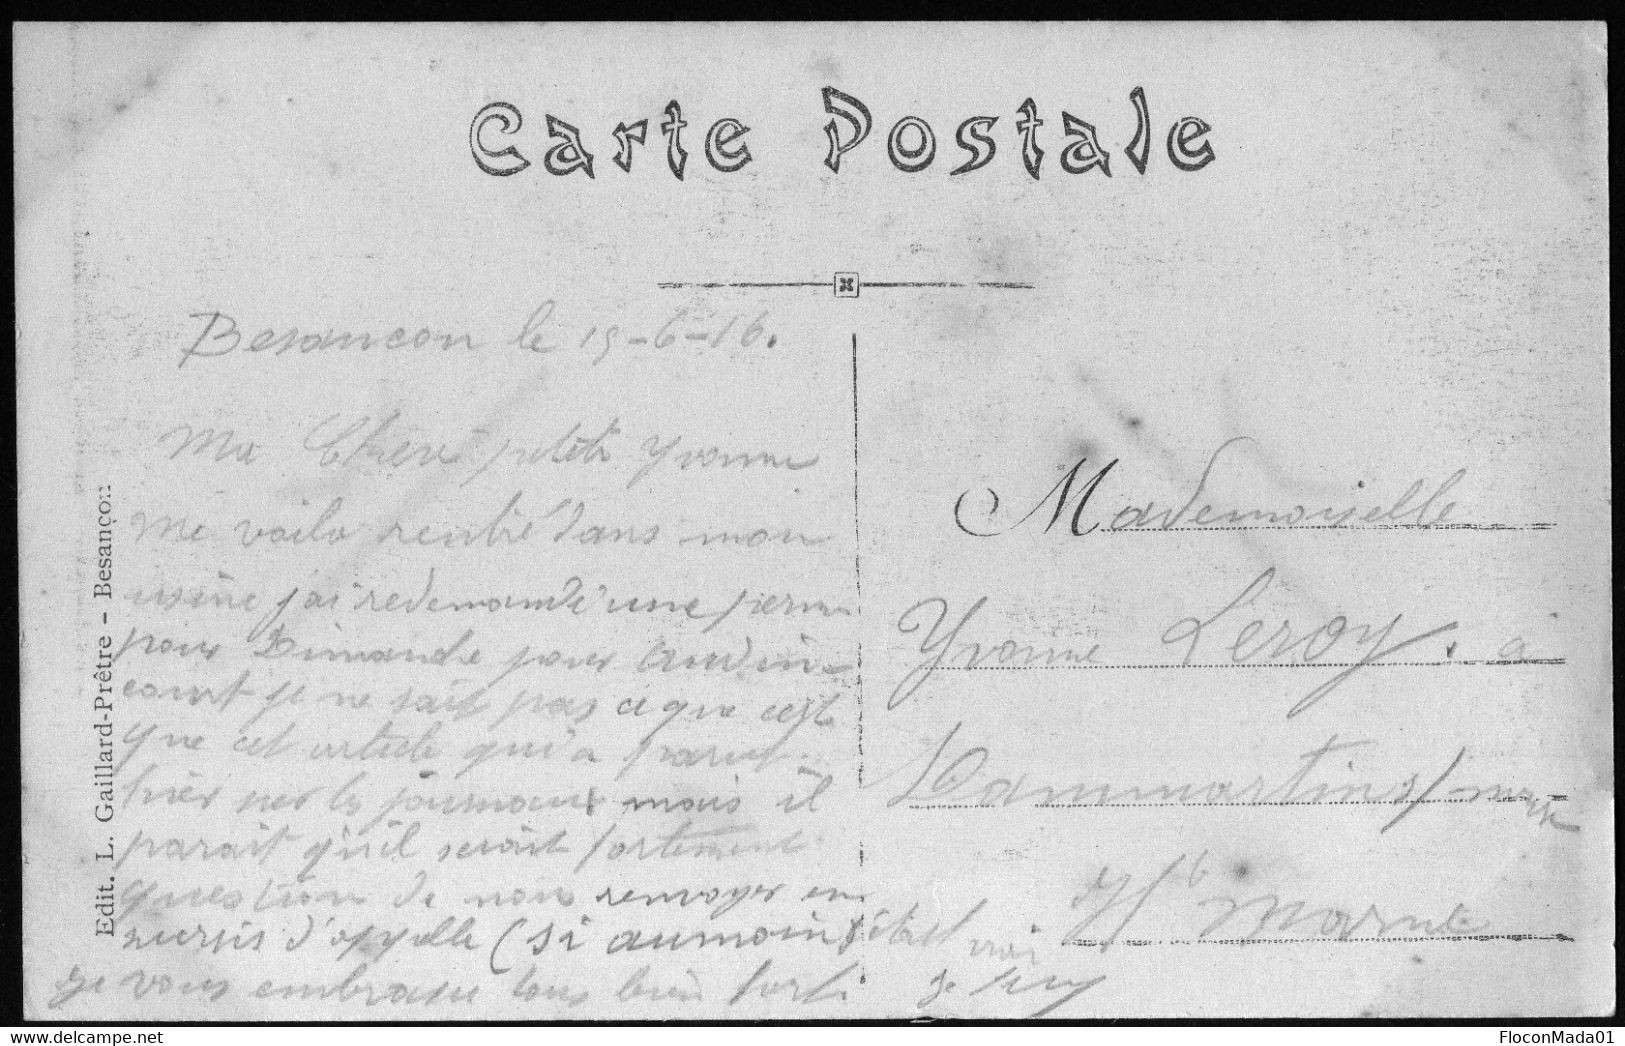 Carte Postale
Edit. L. Gaillard-Prêtre – Besançon
Besancon le 19-6-16.
Ma Chere petite Yvonne
Me voila rentré dans mon
usine j'ai redemandé une perm
pour Dimanche pour
court je ne sait pas ce que cest
que cet article qui a parut
hier sur les journaux mais il
parait qu'il serait fortement
question de nous renvoyer en
sursis d'appelle (si aumoins c'était vrai
Je vous embrasse tous bien fort
Mademoiselle
Yvonne Leroy. à
Dammartin s/ meuse
Hte Marne
FloconMada01